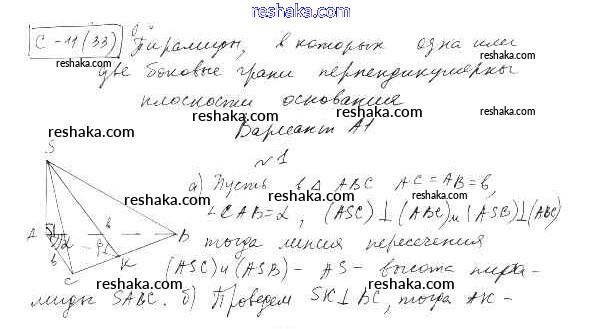 reshaka.com
С-11(33) Пирамиды, в которых одна или
две боковые грани перпендикулярны
reshaka.com
плоскости основания
reshaka.com reshaka.com reshaka.com
Вариант А1
№1
reshaka.com
S
а) Пусть в Δ ABC AC=AB=b,
reshaka.com reshaka.com
∠CAB=α, (ASC)⊥(ABC) и (ASB)⊥(ABC)
A α b β B
тогда линия пересечения
reshaka.com
b C K
(ASC) и (ASB) - AS - высота пира-
reshaka.com reshaka.com
миды SABC. б) Проведем SK⊥BC, тогда AK-
reshaka.com reshaka.com reshaka.com